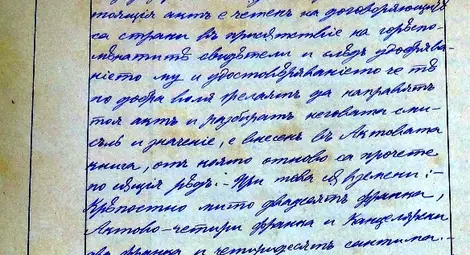 тоящия актъ е четенъ на договоряющия
са страни въ присѫтствие на горѣспо-
мѣнатитѣ свидѣтели и следъ удобрява-
нието му и удостовѣряванието че тѣ
по добра воля желаятъ да направятъ
тоя актъ и разбиратъ неговата сми-
сълъ и значение, е внесенъ въ Актовата
книга, отъ която отново са прочете
по същия редъ. При това съ взѣмени:
Крѣпостно мито двадесятъ франка,
Актово-четири франка и Канцелярки
два франка и четиридесятъ сантима.